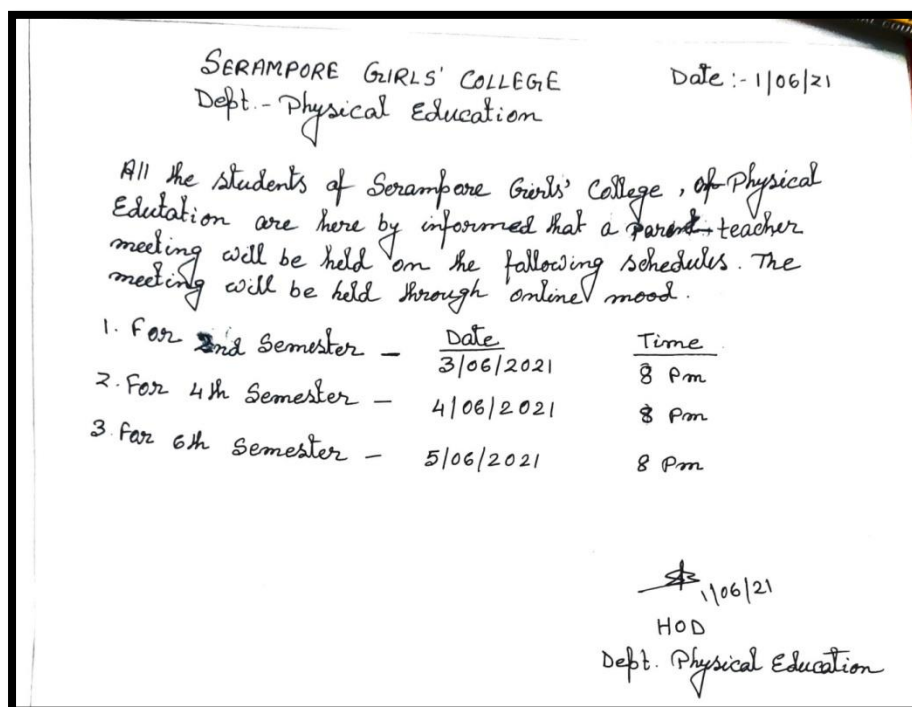 SERAMPORE GIRLS' COLLEGE Date :- 1/06/21
Dept. - Physical Education
All the students of Serampore Girls' College, of Physical
Edutation are here by informed that a parent-teacher
meeting will be held on the following schedules. The
meeting will be held through online mood.
Date Time
1. For 2nd Semester - 3/06/2021 8 Pm
2. For 4th Semester - 4/06/2021 8 Pm
3. For 6th Semester - 5/06/2021 8 Pm
1/06/21
HOD
Dept. Physical Education